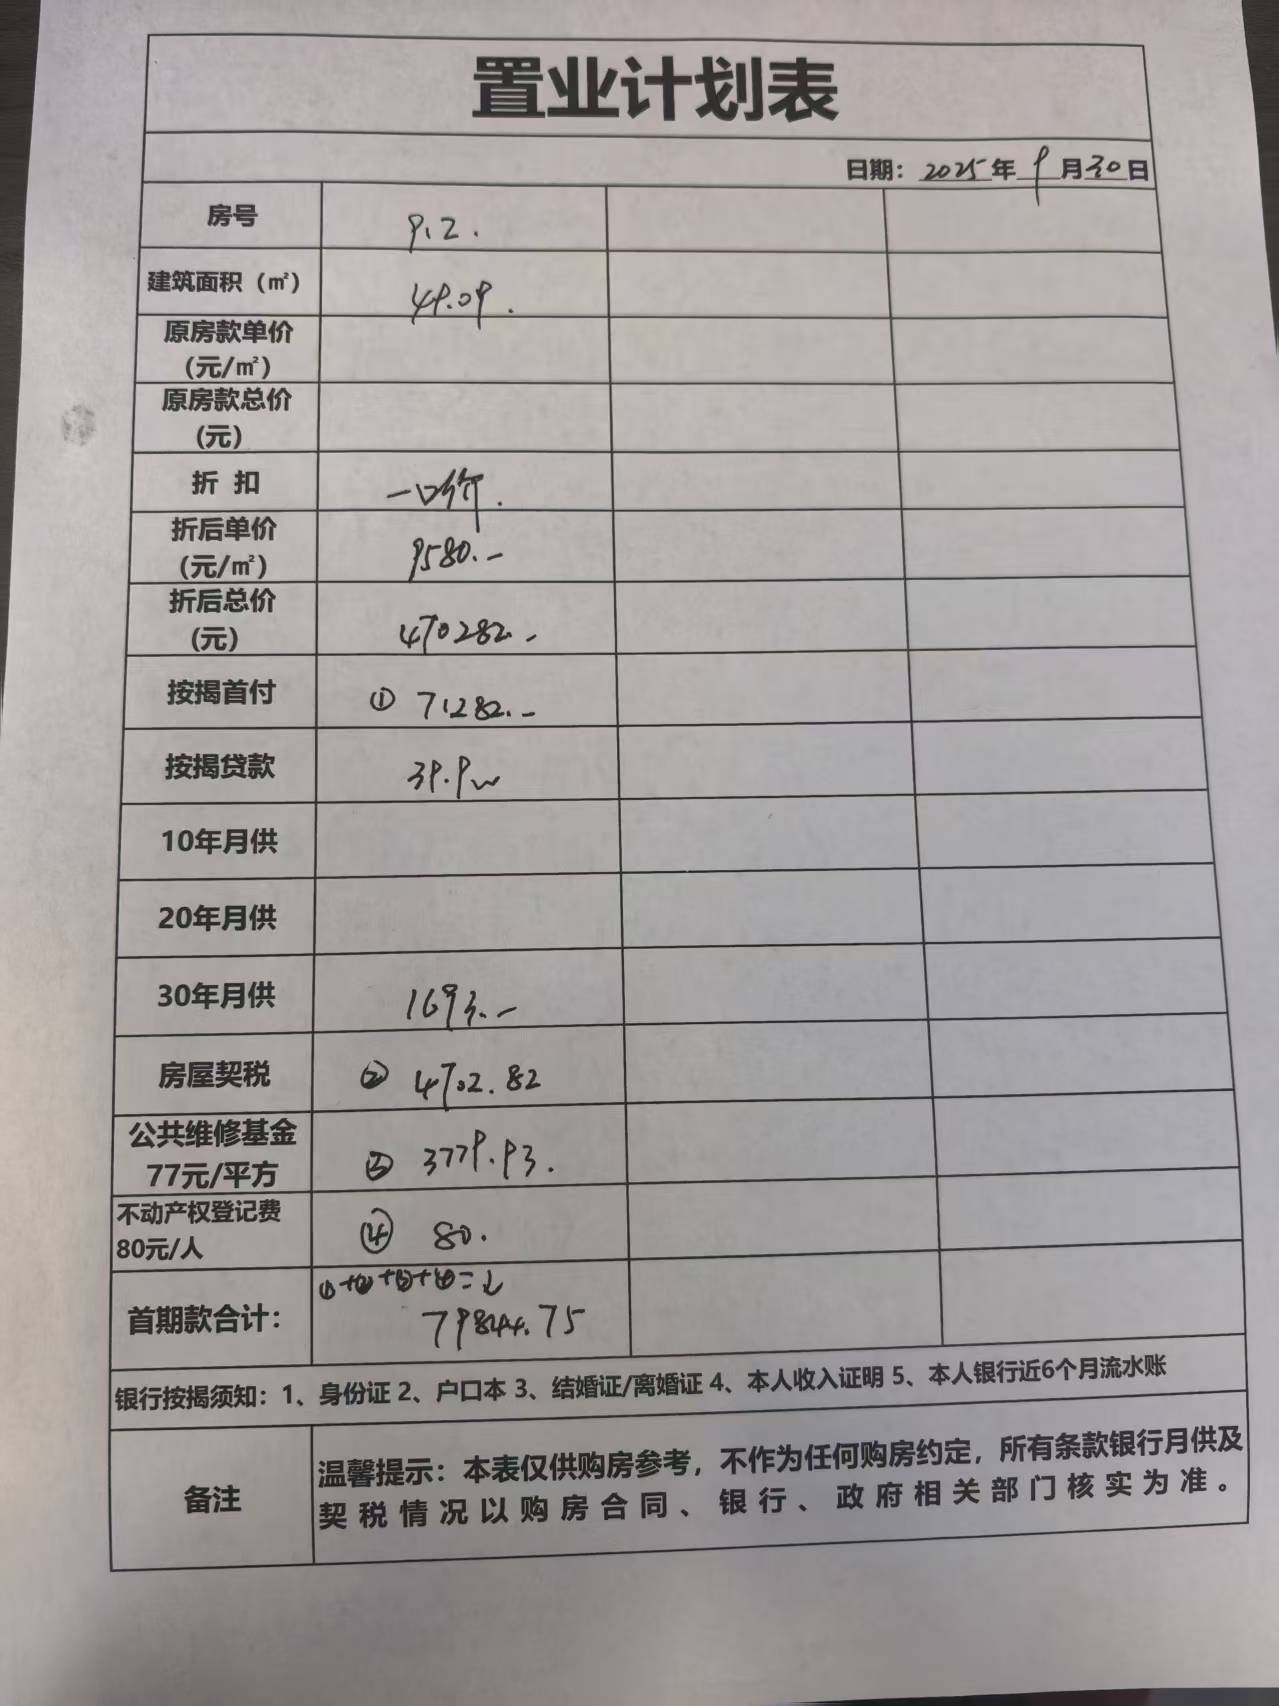 置业计划表
日期：2025年9月30日
房号 9.2.
建筑面积（㎡） 49.09.
原房款单价
(元/㎡)
原房款总价
(元)
折 扣 一口价.
折后单价
(元/㎡) 9580.-
折后总价
(元) 470282.-
按揭首付 ① 71282.-
按揭贷款 39.9w
10年月供
20年月供
30年月供 1693.-
房屋契税 ② 4702.82
公共维修基金
77元/平方 ③ 3779.93.
不动产权登记费
80元/人 ④ 80.
①+②+③+④=
首期款合计： 79844.75
银行按揭须知：1、身份证 2、户口本 3、结婚证/离婚证 4、本人收入证明 5、本人银行近6个月流水账
备注
温馨提示：本表仅供购房参考，不作为任何购房约定，所有条款银行月供及
契税情况以购房合同、银行、政府相关部门核实为准。